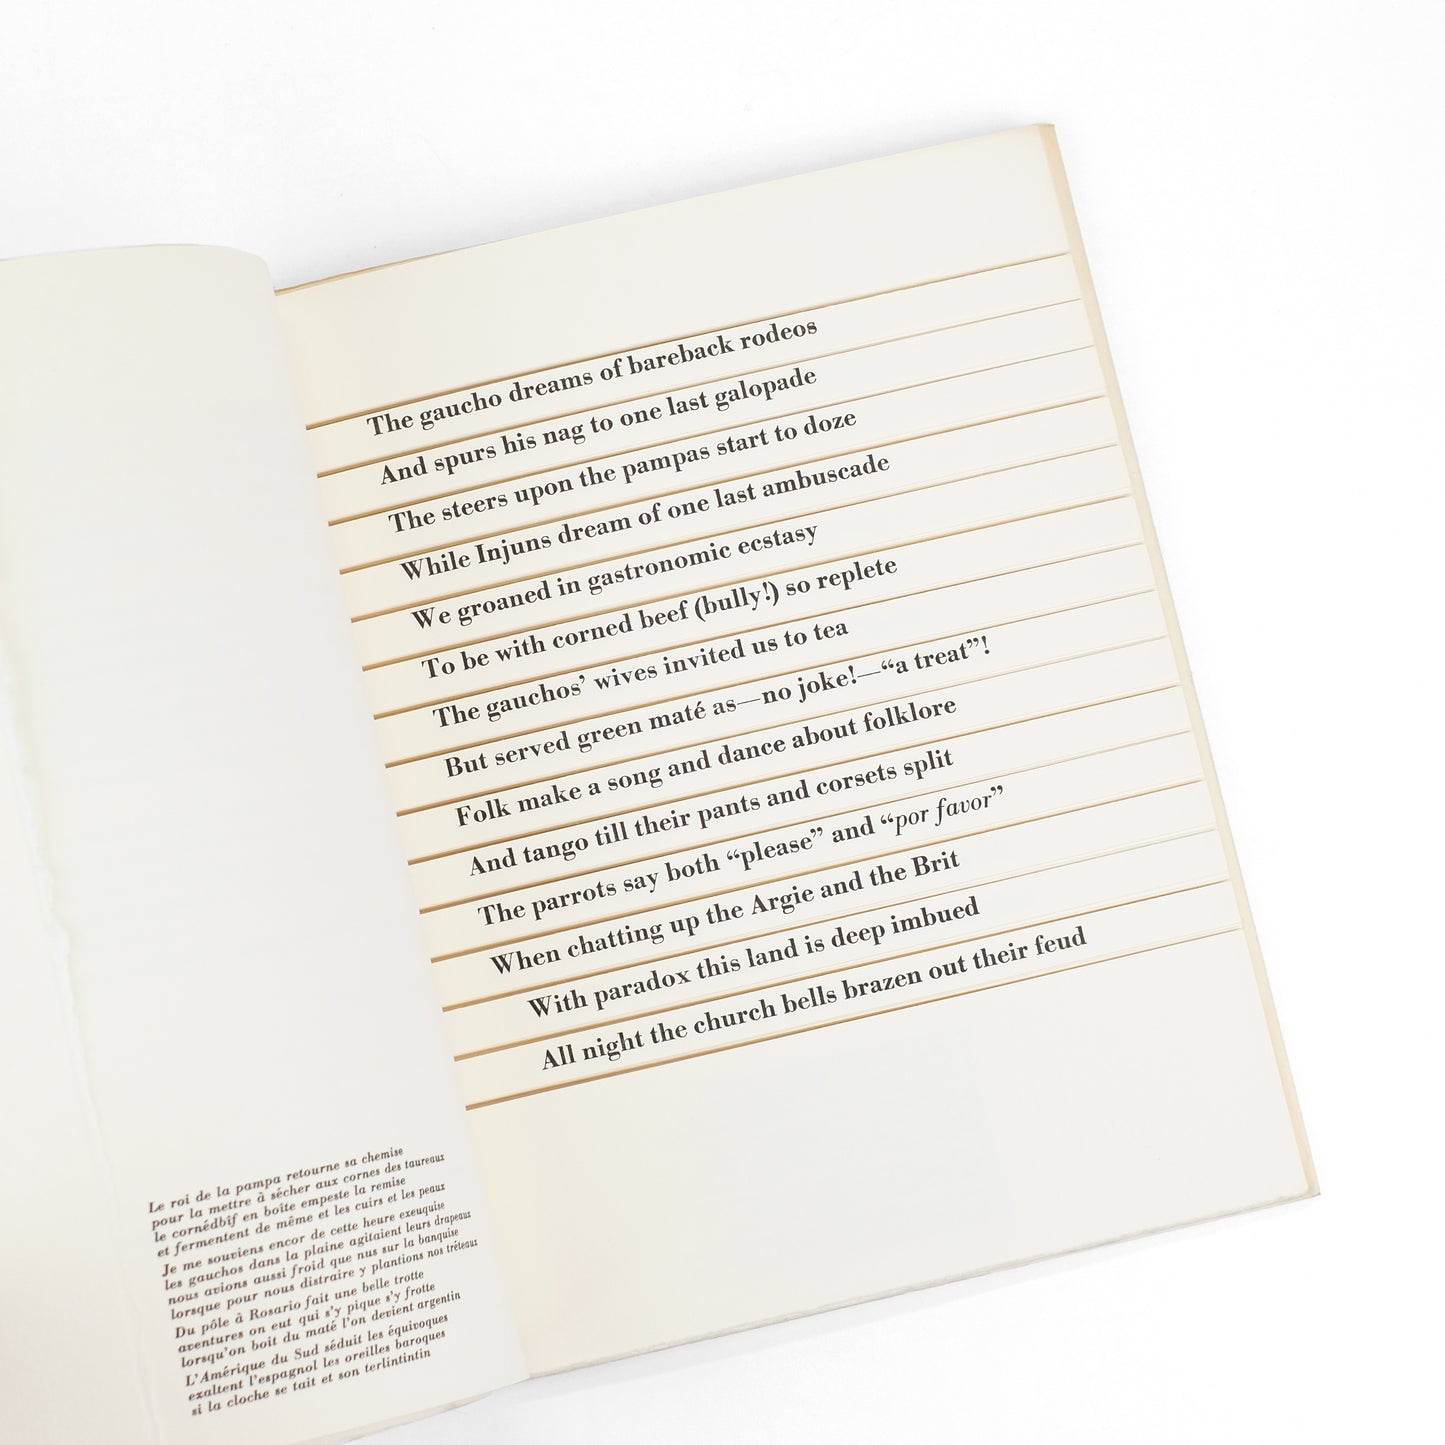 Le roi de la pampa retourne sa chemise
pour la mettre à sécher aux cornes des taureaux
le cornédbîf en boîte empeste la remise
et fermentent de même et les cuirs et les peaux
Je me souviens encor de cette heure exeuquise
les gauchos dans la plaine agitaient leurs drapeaux
nous avions aussi froid que nus sur la banquise
lorsque pour nous distraire y plantions nos tréteaux
Du pôle à Rosario fait une belle trotte
aventures on eut qui s'y pique s'y frotte
lorsqu'on boit du maté l'on devient argentin
L'Amérique du Sud séduit les équivoques
exaltent l'espagnol les oreilles baroques
si la cloche se tait et son terlintintin
The gaucho dreams of bareback rodeos
And spurs his nag to one last galopade
The steers upon the pampas start to doze
While Injuns dream of one last ambuscade
We groaned in gastronomic ecstasy
To be with corned beef (bully!) so replete
The gauchos' wives invited us to tea
But served green maté as—no joke!—“a treat”!
Folk make a song and dance about folklore
And tango till their pants and corsets split
The parrots say both “please” and “por favor”
When chatting up the Argie and the Brit
With paradox this land is deep imbued
All night the church bells brazen out their feud